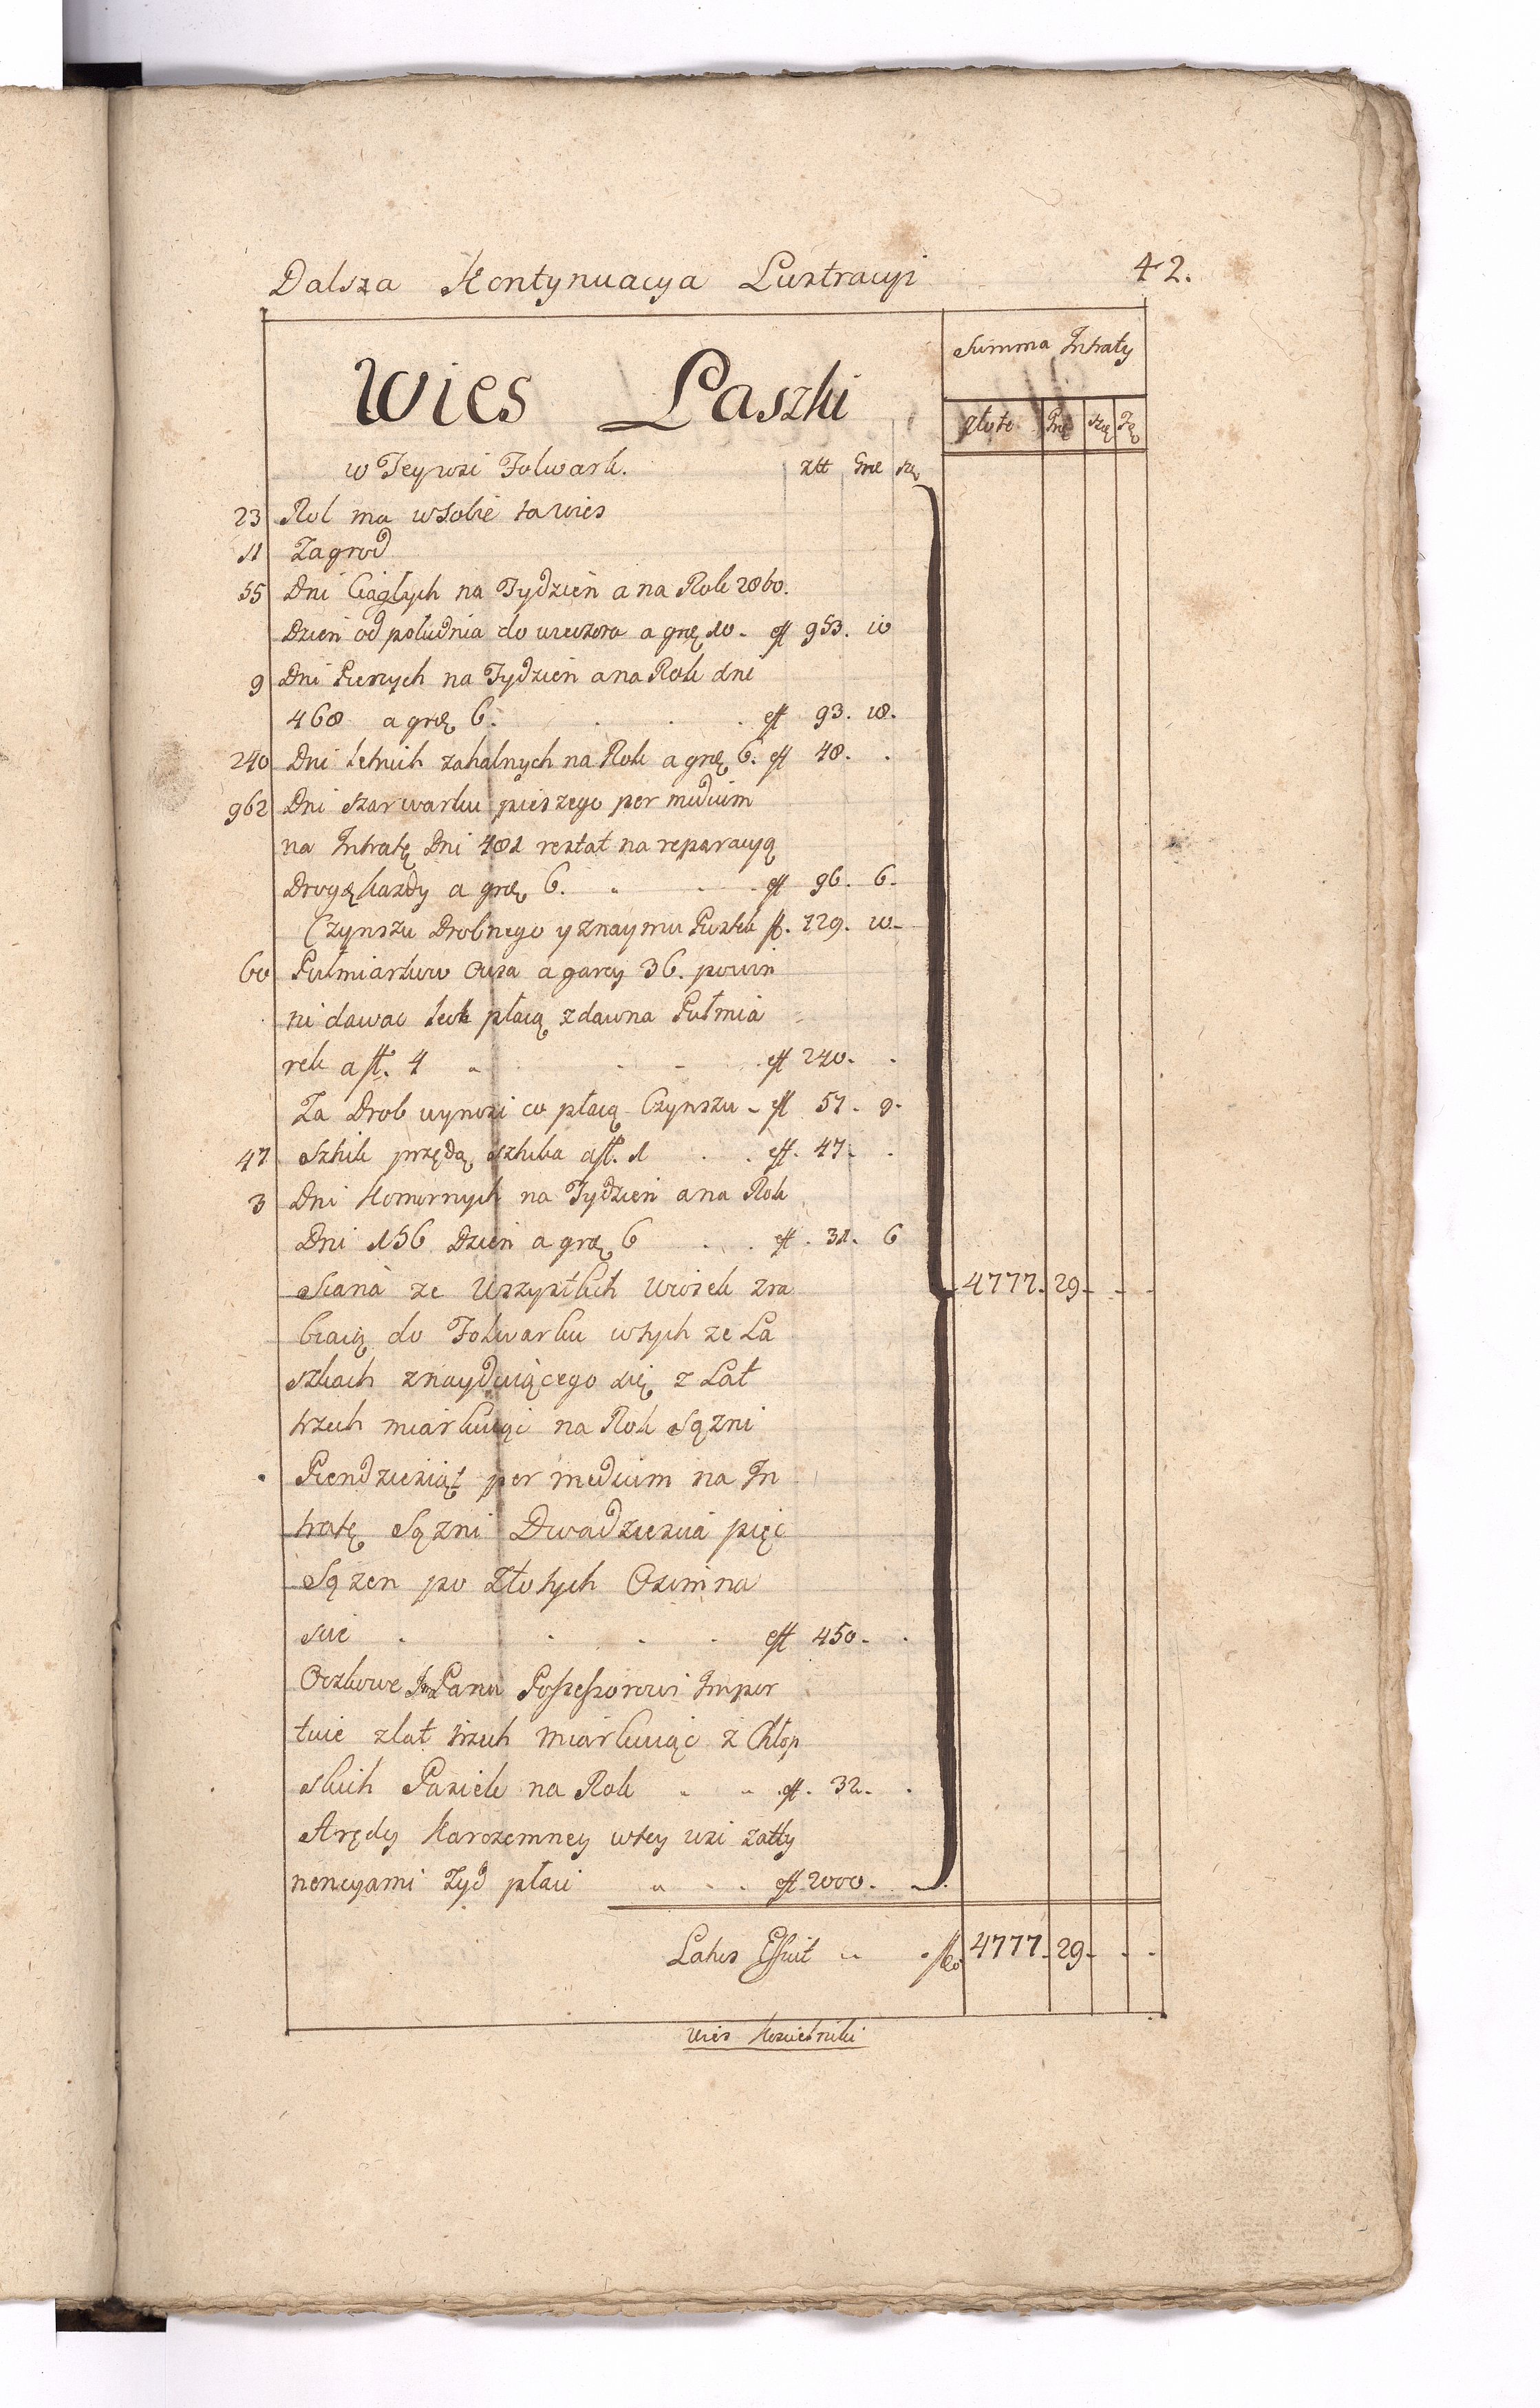 Dalsza Kontynuacya Lustracyi 42.
Summa Intraty
Wies Laszki
złote Grę Szę
w Teywsi Folwark. złł Gre szę
23 Rol ma wsobie tawies
11 Zagrod
55 Dni Ciągłych na Tydzień a na Rok 2860.
Dzień od południa do wieczora a grę 10. eff 953. 10
9 Dni Pieszych na Tydzień ana Rok dni
468 a grę 6. eff 93. 18.
240 Dni letnich zakalnych na Rok a grę 6. eff 48. .
962 Dni szarwarku pieszego per medium
na Intratę Dni 481 restat na reparacyą
Drogę każdy a grę 6. eff 96. 6.
Czynszu Drobnego y znaymu Pustek f. 129. 10
60 Pułmiarkuw Owsa a garcy 36. powin
ni dawac lecz płacą zdawna Pułmia
rek a fł. 4 eff 240. .
Za Drob wynosi co płacą Czynszu eff 57. 9.
47 Sztuk przędą sztuka a fł. 1 eff. 47. .
3 Dni Komornych na Tydzień ana Rok
Dni 156 Dzien a grę 6 eff. 31. 6
Siana ze Wszystkich Wiosek zra
biaią do Folwarku wtych ze La
szkach znayduiącego się z Lat
trzech miarkuiąc na Rok Sązni
Piendziesiąt per medium na In
tratę Sązni Dwadziescia pięc
Sązen po Złotych Osimna
scie eff 450. .
4777. 29.
Oczkowe Panu Possessorowi Impor
tuie zlat trzech miarkuiąc z Chłop
skich Pasiek na Rok eff. 32. .
Arędy Karczemney wtey wsi zatty
nencyami Zyd płaci eff 2000.
Latus Efficit 4777. 29.
Wies Koscielniki